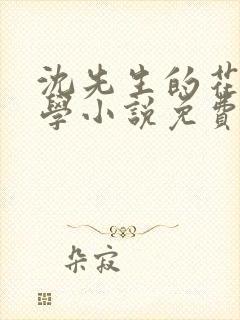 沈先生的花
學小說免費
朵寂